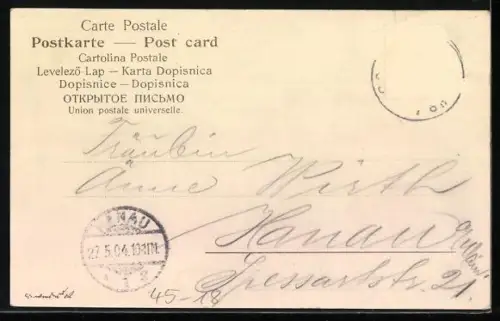 Carte Postale
Postkarte — Post card
Cartolina Postale
Levelező-Lap — Karta Dopisnica
Dopisnice — Dopisnica
ОТКРЫТОЕ ПИСЬМО
Union postale universelle.
Fräulein
Anne Wirth
Hanau
Spessartstr. 21.
HANAU
27.5.04.10-11N.
45-18